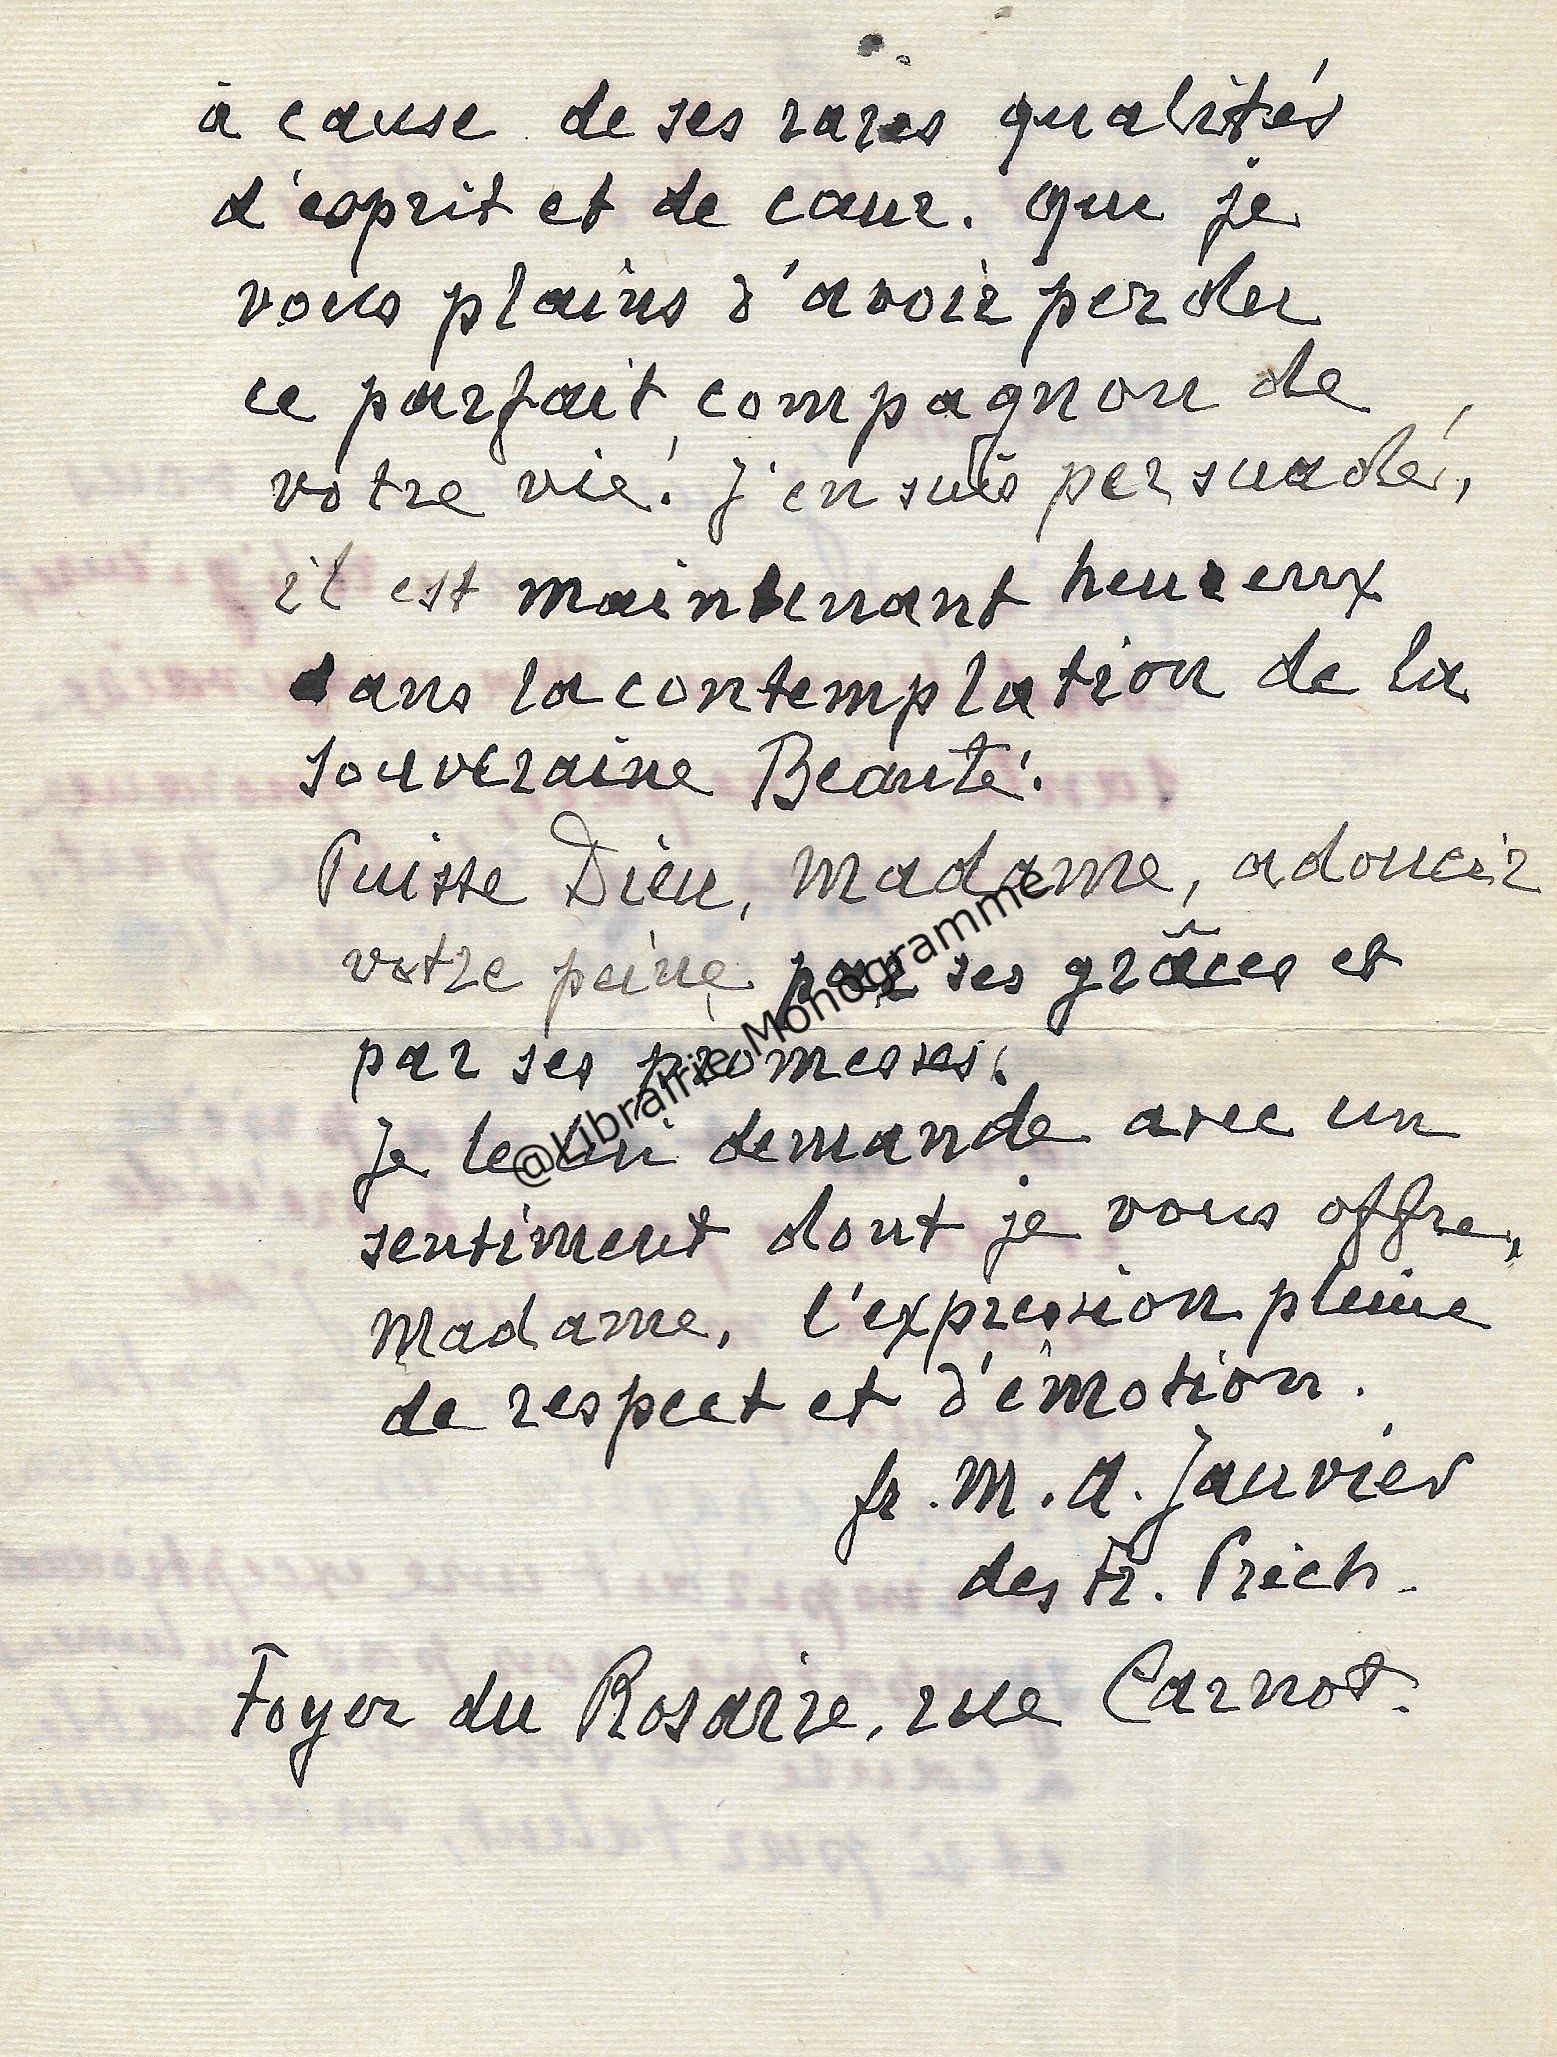 à cause de ses rares qualités
d'esprit et de cœur. que je
vous plains d'avoir perdu
ce parfait compagnon de
votre vie! J'en suis persuadé,
il est maintenant heureux
dans la contemplation de la
souveraine Beauté.
Puisse Dieu, Madame, adoucir
votre peine par ses grâces et
par ses promesses.
Je le lui demande avec un
sentiment dont je vous offre,
Madame, l'expression pleine
de respect et d'émotion.
fr. M. A. Janvier
des Fr. Prêch.
Foyer du Rosaire, rue Carnot.
@Librairie Monogramme